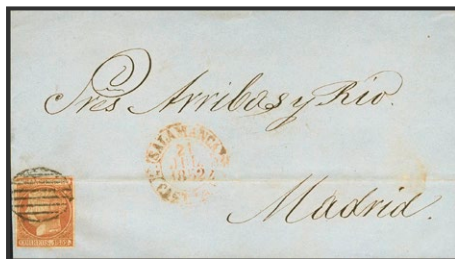 Sres Arribas y Rio.
SALAMANCA
21
Madrid.